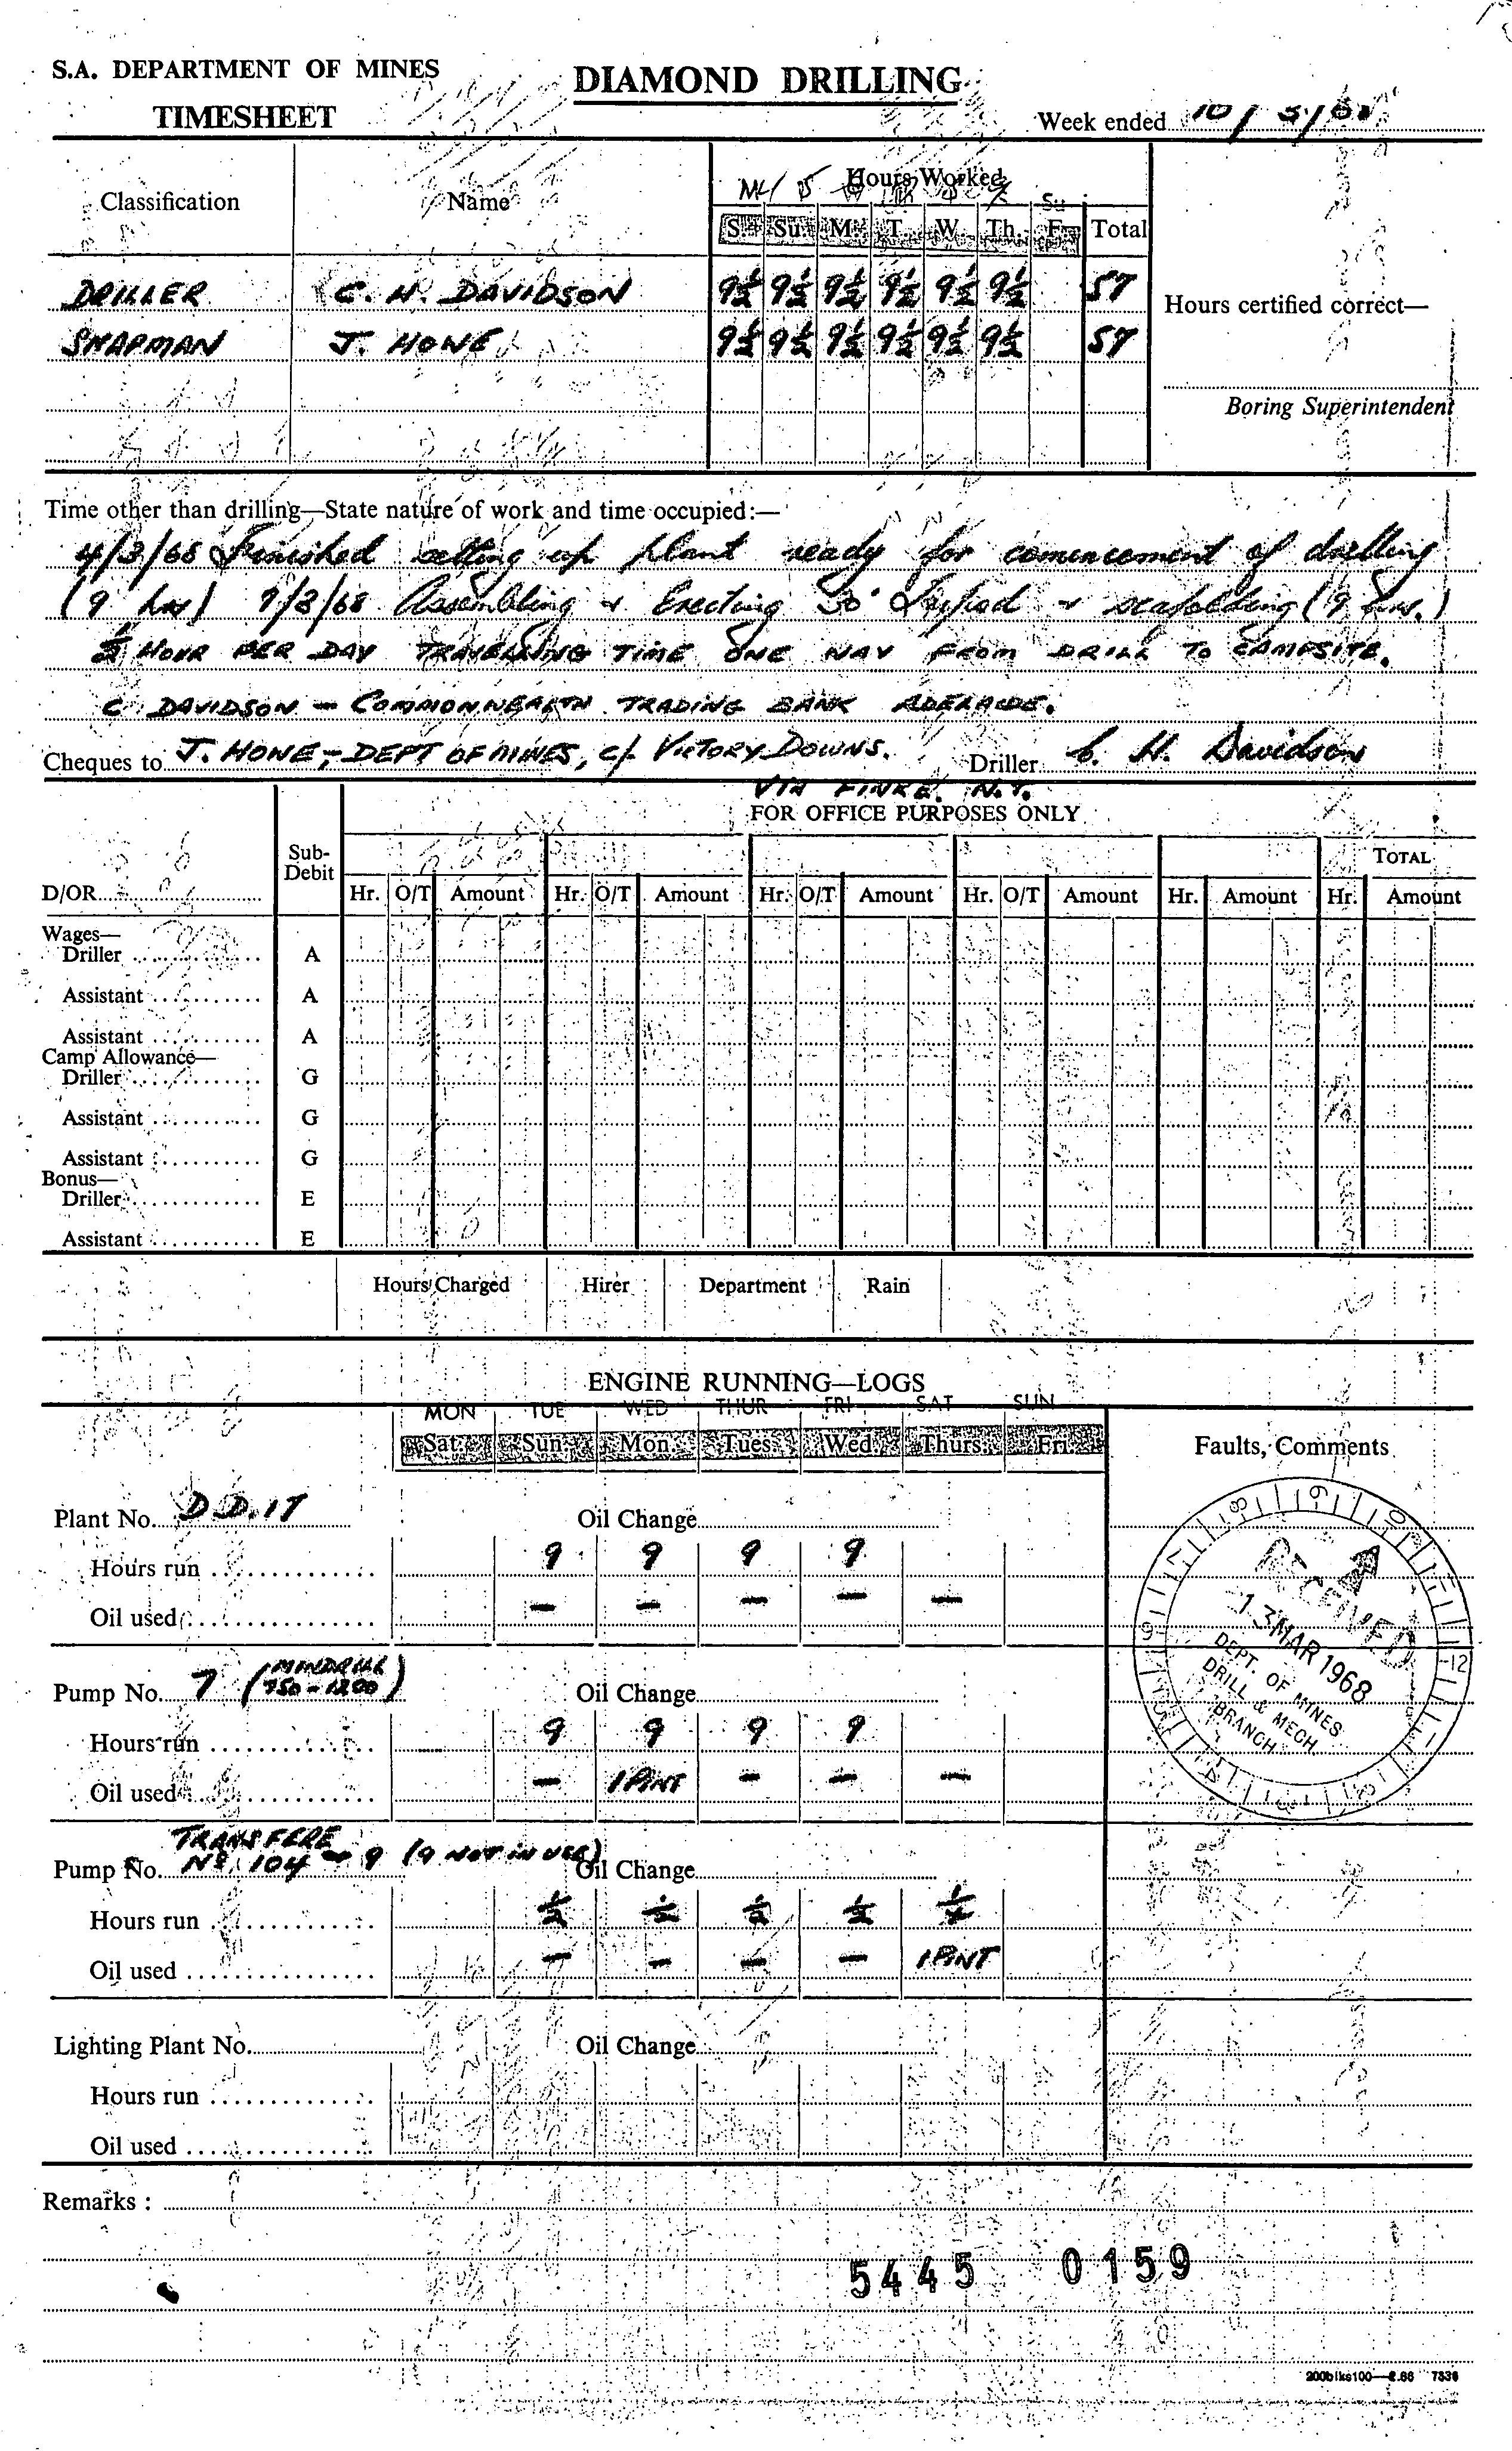 S.A. DEPARTMENT OF MINES
DIAMOND DRILLING
TIMESHEET
Week ended 10/3/68
Classification
Name
Hours Worked
S. Su. M. T. W. Th. F. Total
DRILLER C. H. DAVIDSON 9½ 9½ 9½ 9½ 9½ 9½ 57
J. HONE 9½ 9½ 9½ 9½ 9½ 9½ 57
Hours certified correct—
Boring Superintendent
Time other than drilling—State nature of work and time occupied:—
4/3/68 Finished setting up plant ready for comencement of drilling
(9 hrs) 9/3/68 Assembling & Erecting 30' & scaffolding (9 hrs.)
½ HOUR PER DAY TRAVELLING TIME ONE WAY FROM DRILL TO CAMPSITE.
C. DAVIDSON – COMMONWEALTH TRADING BANK ADELAIDE.
Cheques to J. HONE – DEPT OF MINES, c/- VICTORY DOWNS. Driller C. H. Davidson
VIA FINKE. N.T.
FOR OFFICE PURPOSES ONLY
Sub-Debit
TOTAL
D/OR
Hr. O/T Amount Hr. O/T Amount Hr. O/T Amount Hr. O/T Amount Hr. Amount Hr. Amount
Wages—
Driller A
Assistant A
Assistant A
Camp Allowance—
Driller G
Assistant G
Assistant G
Bonus—
Driller E
Assistant E
Hours Charged Hirer Department Rain
ENGINE RUNNING—LOGS
MON TUE WED THUR FRI SAT SUN
Sat. Sun. Mon. Tues. Wed. Thurs. Fri.
Faults, Comments
Plant No. D.D.17 Oil Change
Hours run 9 9 9 9
Oil used – – – – –
Pump No. 7 (MINDRILL 750-1200) Oil Change
Hours run 9 9 9 9
Oil used – 1 PINT – – –
TRANSFERE
Pump No. No. 104 – 9 (9 NOT IN USE) Oil Change
Hours run ½ ½ ½ ½ ¼
Oil used – – – – 1 PINT
Lighting Plant No. Oil Change
Hours run
Oil used
RECEIVED
13 MAR 1968
DEPT. OF MINES
DRILL & MECH
BRANCH
Remarks :
5445 0159
200blks100—2.66 7336